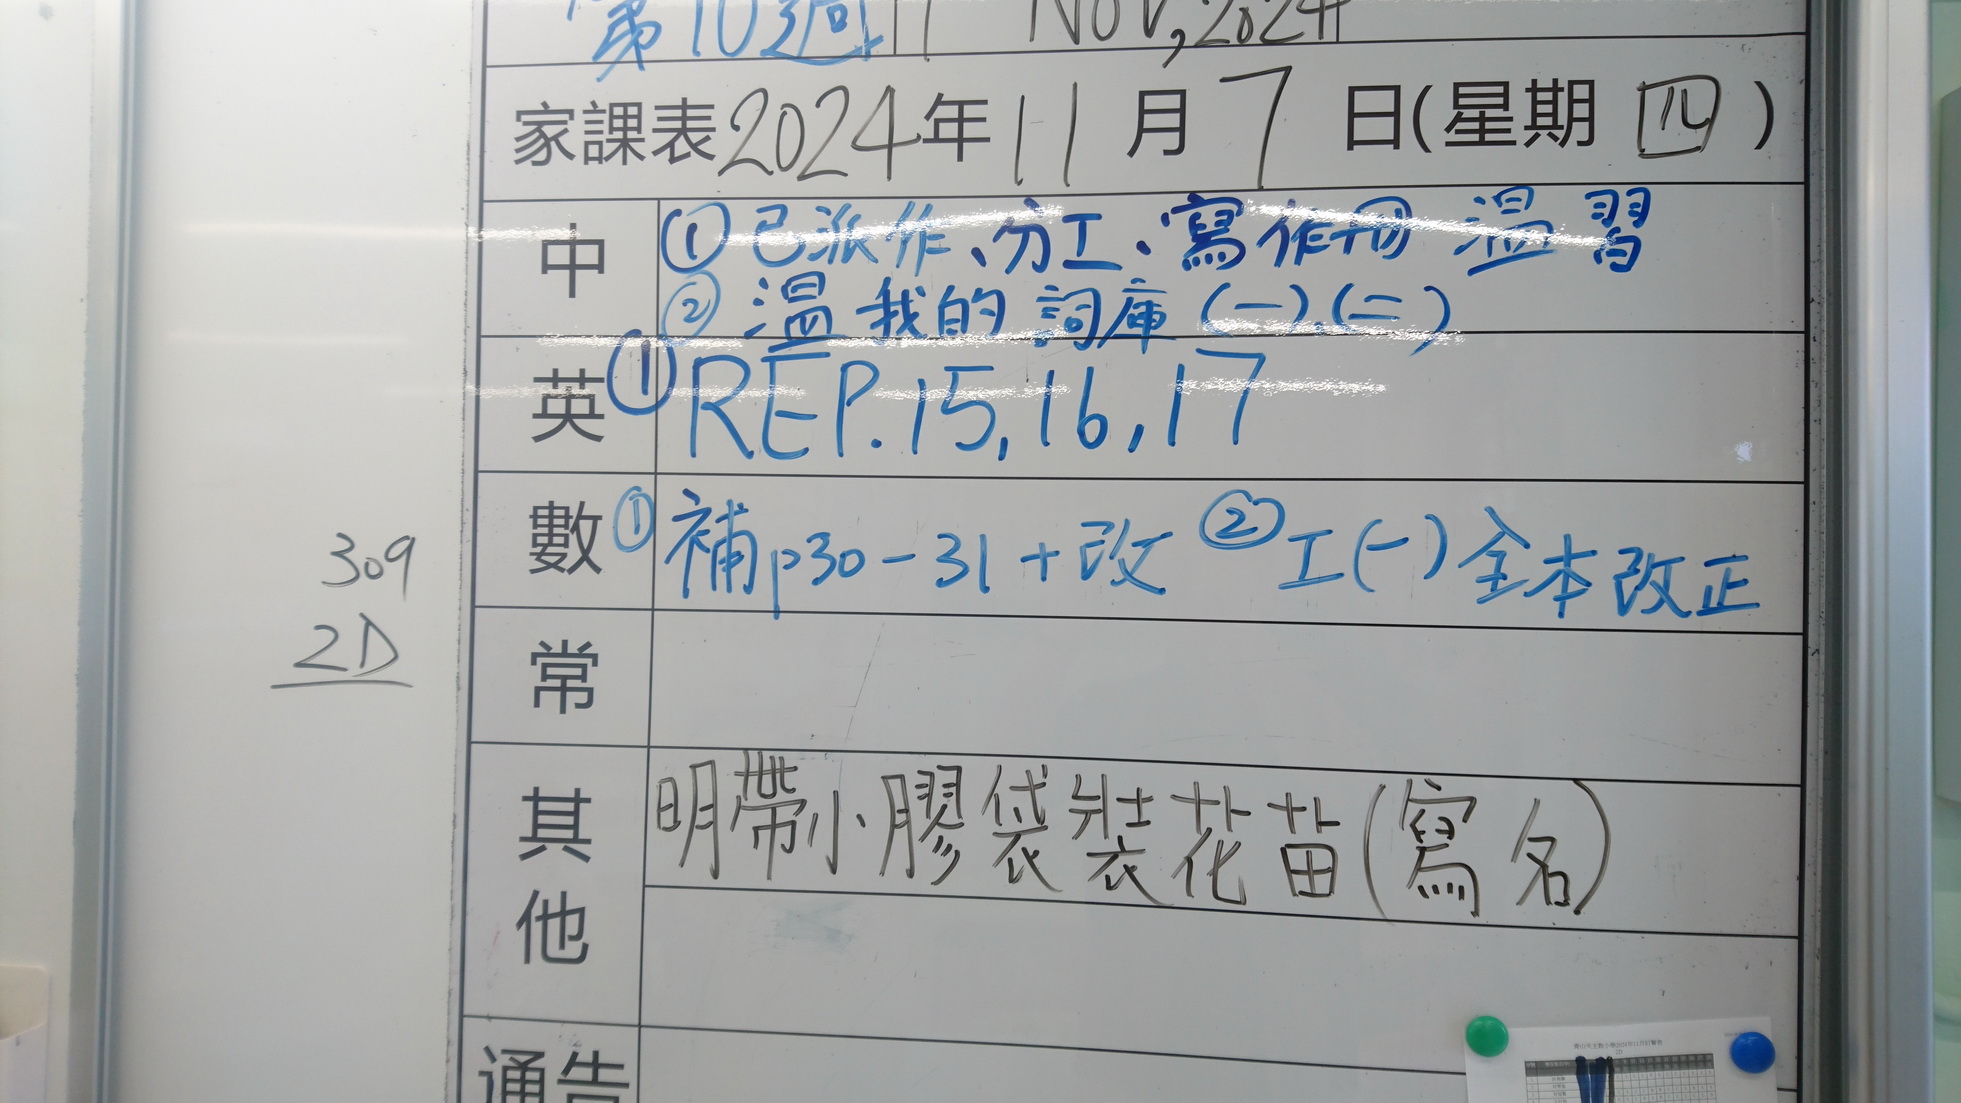 第10週 7 Nov, 2024
家課表2024年11月7日(星期四)
中 ①已派作、分工、寫作冊 溫習
②溫我的詞庫(一).(二)
英 ①REP.15,16,17
數 ①補p30-31+改 ②工(一)全本改正
309
2D
常
其他 明帶小膠袋裝花苗(寫名)
通告